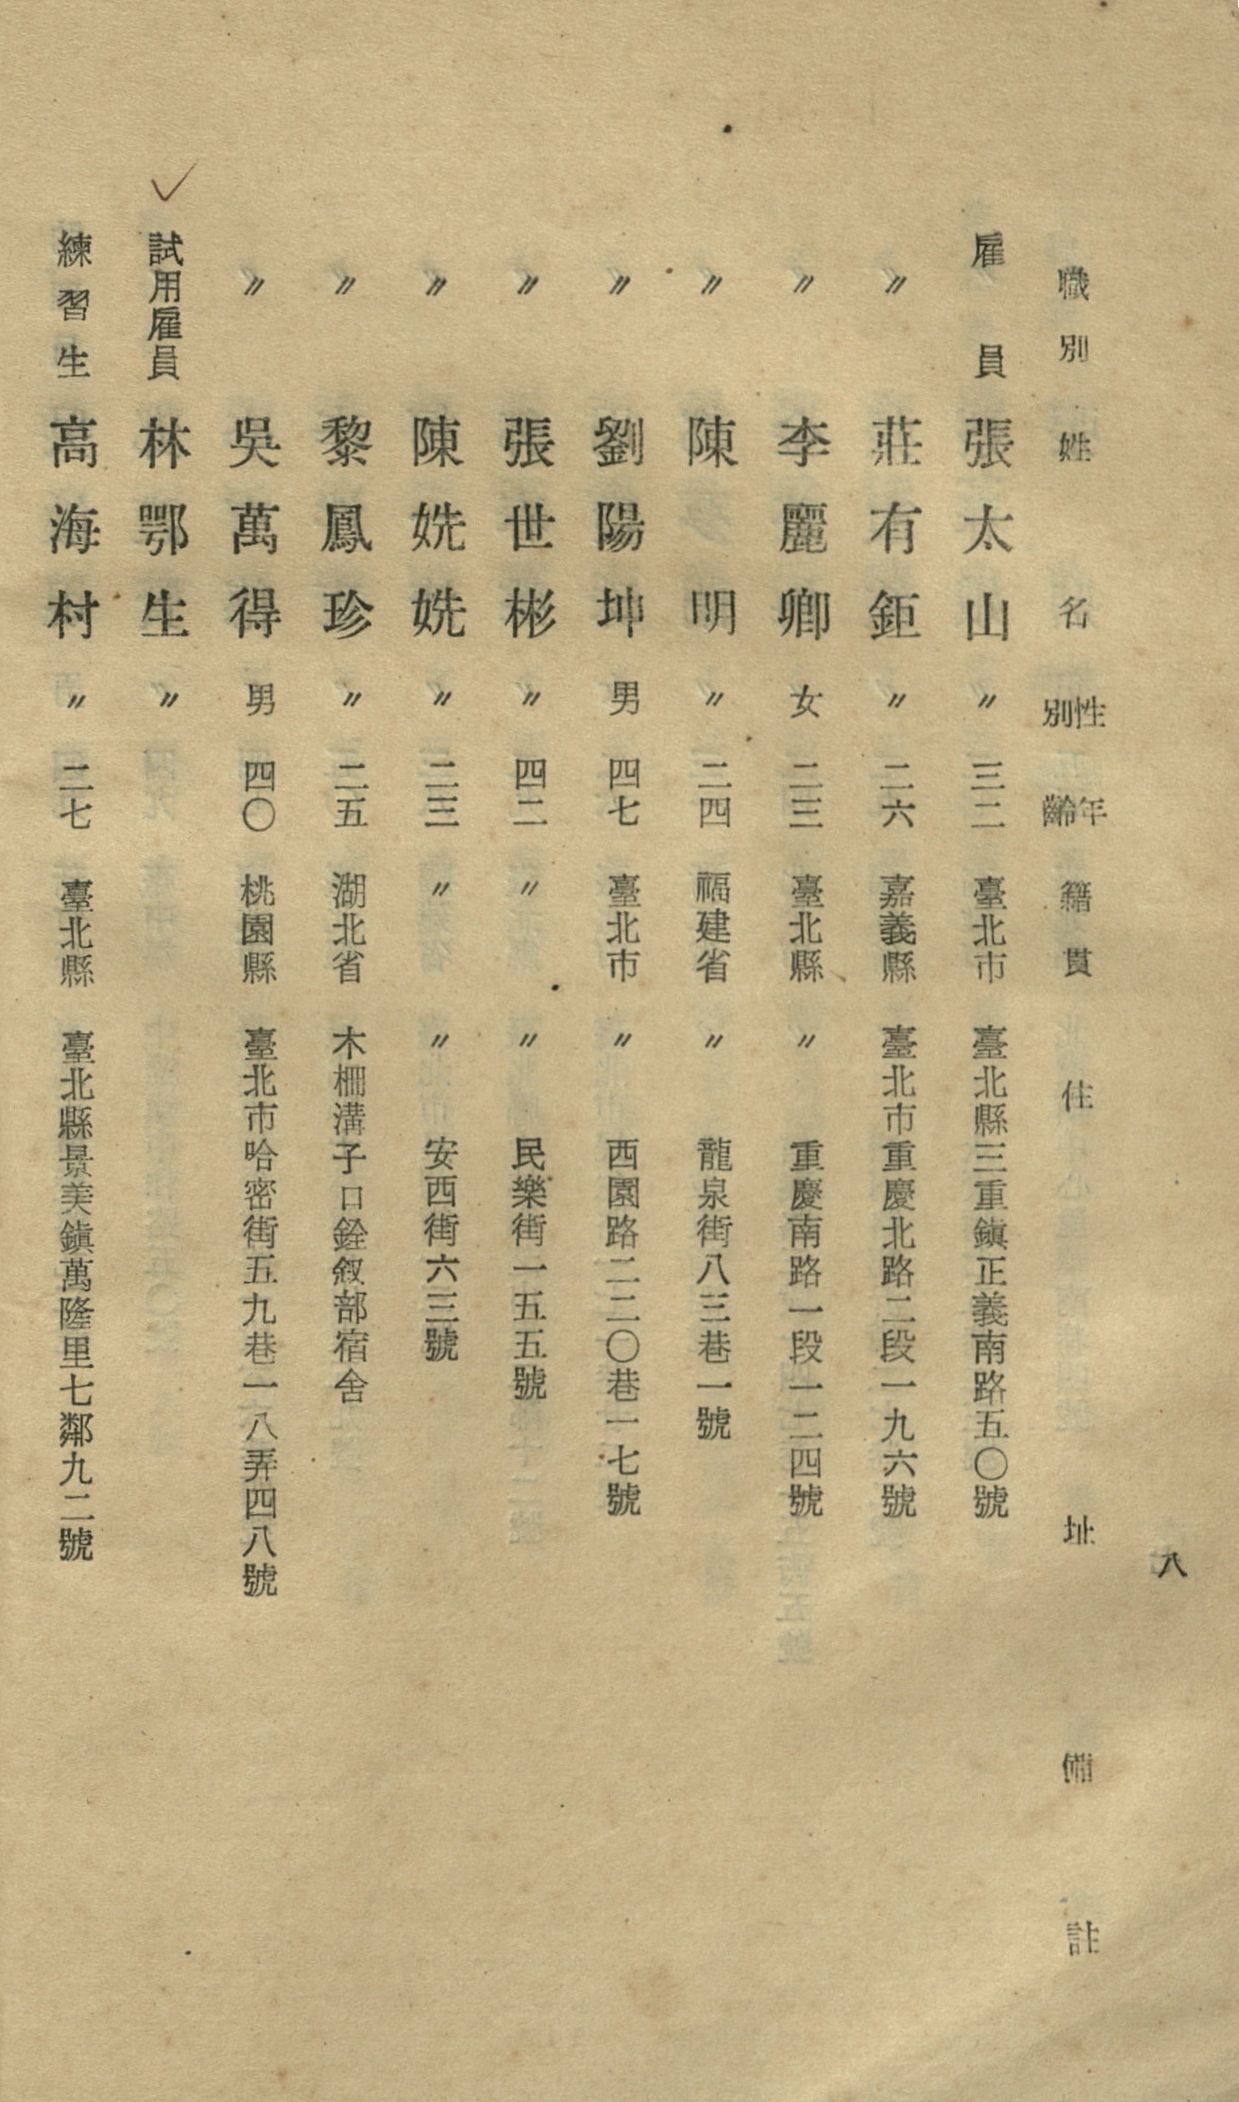 八
職別 姓名 性別 年齡 籍貫 住址 備註
雇員 張太山 〃 三二 臺北市 臺北縣三重鎮正義南路五〇號
〃 莊有鉅 〃 二六 嘉義縣 臺北市重慶北路二段一九六號
〃 李麗卿 女 二三 臺北縣 〃 重慶南路一段一二四號
〃 陳明 〃 二四 福建省 〃 龍泉街八三巷一號
〃 劉陽坤 男 四七 臺北市 〃 西園路二二〇巷一七號
〃 張世彬 〃 四二 〃 〃 民樂街一五五號
〃 陳姺姺 〃 二三 〃 〃 安西街六三號
〃 黎鳳珍 〃 二五 湖北省 木柵溝子口銓敘部宿舍
〃 吳萬得 男 四〇 桃園縣 臺北市哈密街五九巷一八弄四八號
試用雇員 林鄂生 〃
練習生 高海村 〃 二七 臺北縣 臺北縣景美鎮萬隆里七鄰九二號